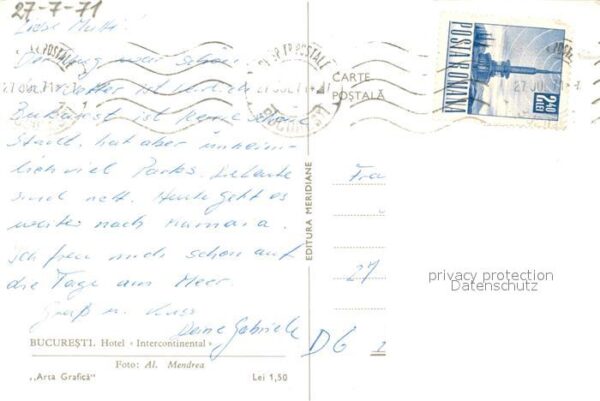 27-7-71
Liebe Mutti!
Der Flug war schön.
Wetter ist
Bukarest ist keine schöne
Stadt, hat aber unheim-
lich viel Parks. Die Leute
sind nett. Heute geht es
weiter nach Mamaia.
Ich freu mich schon auf
die Tage am Meer.
Gruß u. Kuss
Deine Gabriele
BUCUREȘTI. Hotel «Intercontinental»
Foto: Al. Mendrea
„Arta Grafică"
Lei 1,50
EDITURA MERIDIANE
CARTE
POȘTALĂ
POSTA ROMANA
2,40
LEI
27 JUL 71
Fra
27
D6
privacy protection
Datenschutz